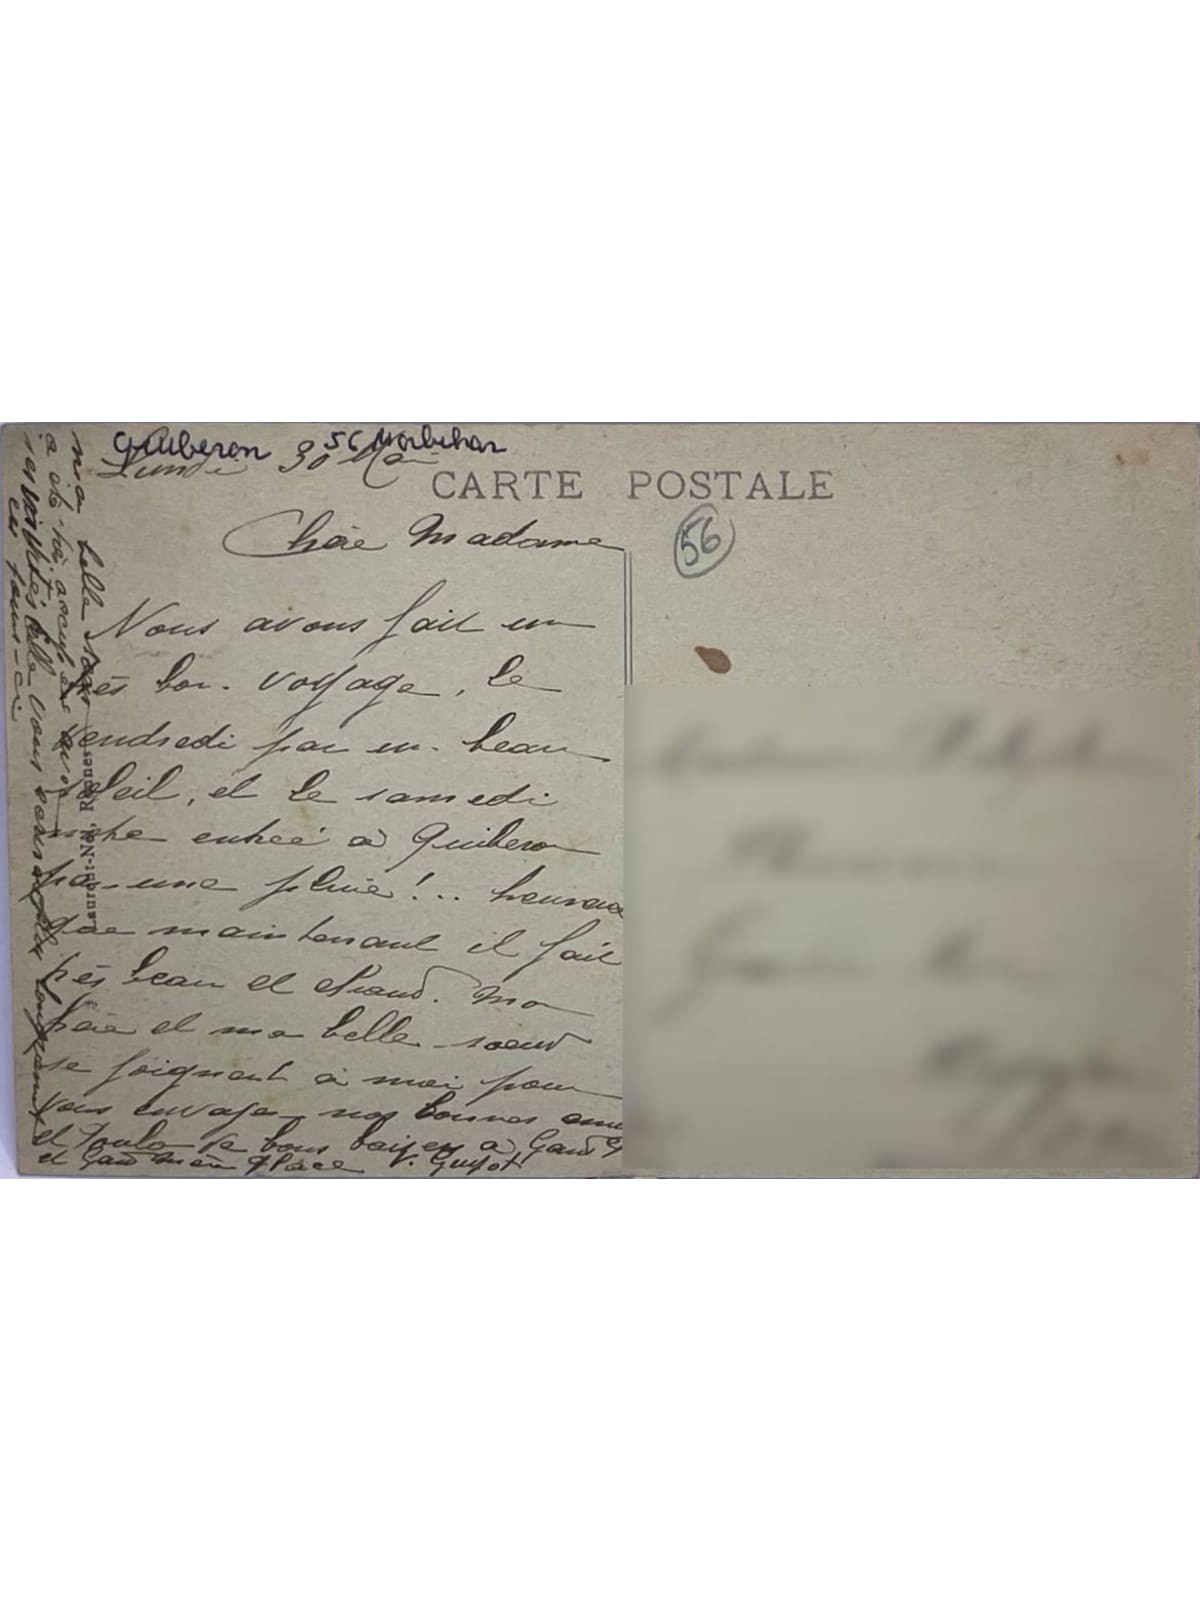 Quiberon 56 Morbihan
Lundi 30 Mai
CARTE POSTALE
56
Chère Madame
Nous avons fait un
très bon voyage, le
vendredi par un beau
soleil, et le samedi
notre entrée à Quiberon
par une pluie!.. heureux
que maintenant il fait
très beau et chaud. Mon
frère et ma belle-sœur
se joignent à moi pour
vous envoyer nos bonnes
et Toulo de bons baisers à Grand
et Grand Mère Place V. Guyot
ma belle sœur
a été très occupée avec
ses visites elle vous
longuement
ces jours-ci
Laurent-Nel, Rennes